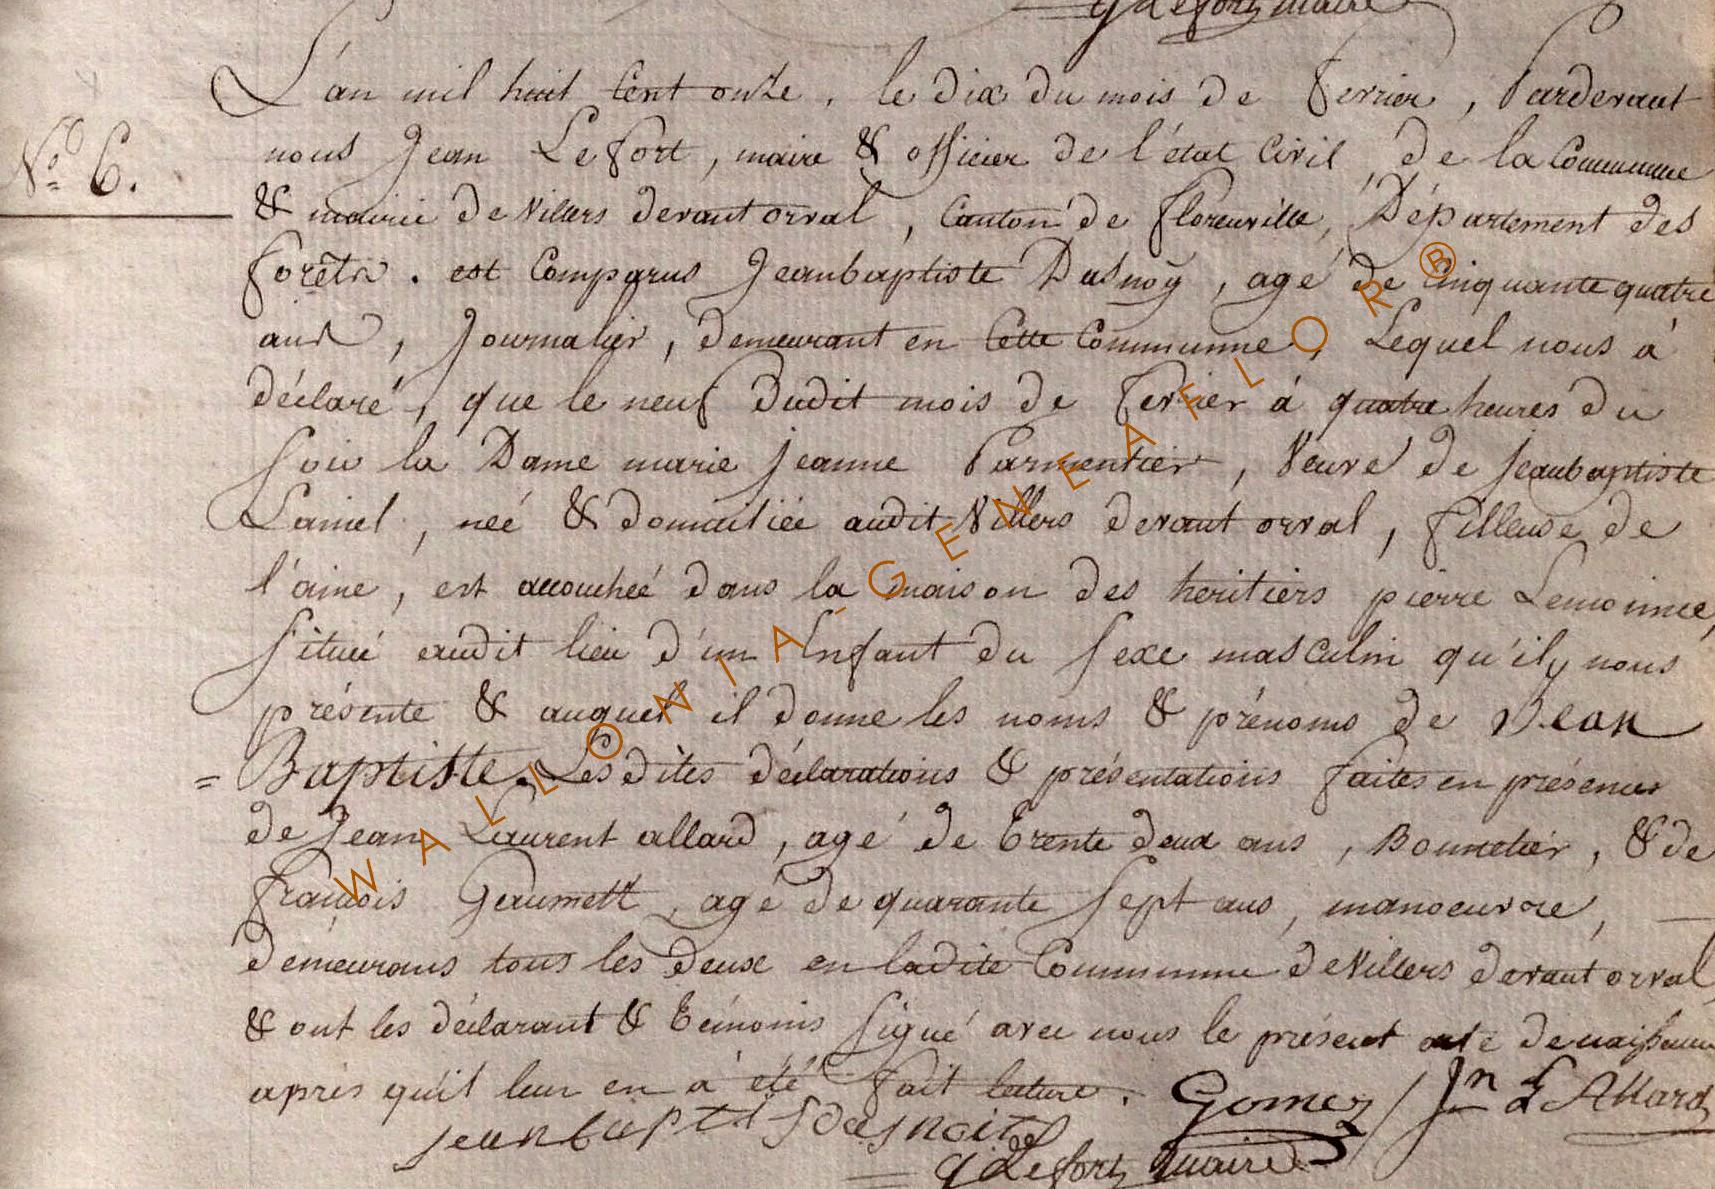 Lefort, maire
L'an mil huit cent onze, le dix du mois de fevrier, Pardevant
nous Jean Lefort, maire & officier de l'état civil, de la Commune
N.º 6.
& mairie de Villers devant orval, Canton de florenville, Département des
forêts. est Comparus Jeanbaptiste Dasnoÿ, agé de Cinquante quatre
ans, Journalier, demeurant en cette Communne, Lequel nous à
déclaré, que le neuf dudit mois de fevrier à quatre heures du
soir la Dame marie jeanne Parmentier, Veuve de jeanbaptiste
Lamel, neé & domiciliée audit Villers devant orval, filleuse de
l'aine, est accouchéé dans la maison des heritiers pierre Lemoinne,
situéé audit lieu d'un Enfant du sexe masculin qu'ily nous
présente & auquel il donne les noms & prénoms de Jean
= Baptiste. Les dites déclarations & présentations faites en présences
de Jean Laurent allard, agé de trente deux ans, Bonnetier, & de
françois Geaumett, agé de quarante sept ans, manoeuvre,
demeurans tous les deux en ladite Communne de Villers devant orval,
& ont les déclarant & témoins signé avec nous le présent acte de naissance
après qu'il leur en a été fait lecture. Gomez Jn L Allard
jeanbaptt dasnoit
Lefort, Maire
WALLONIA-GENEAFLOR®